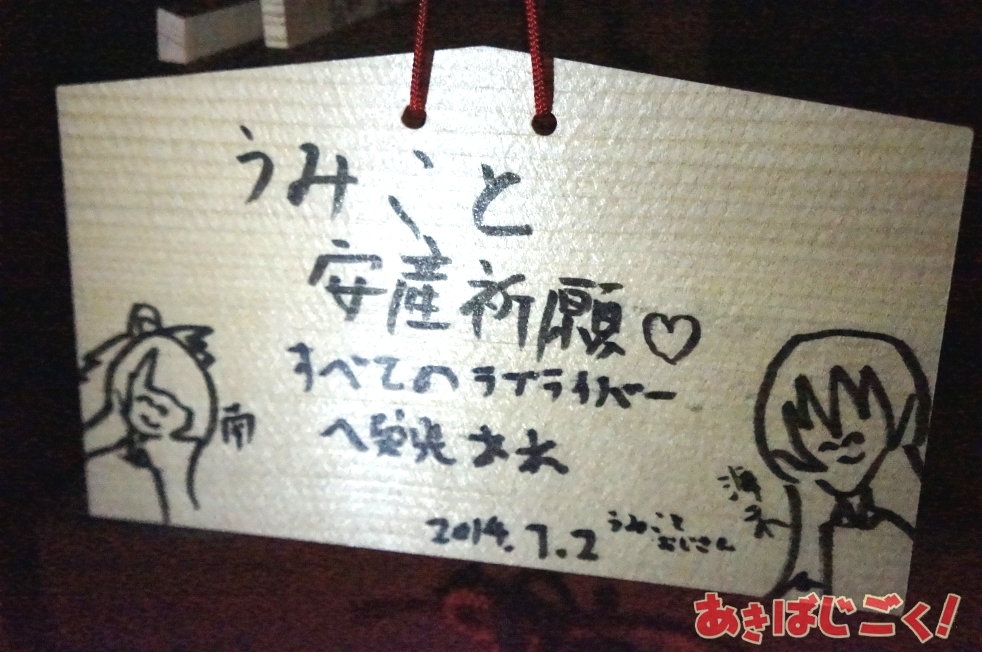 うみこと
安産祈願♡
すべてのラブライバー
へ
南
海未
2014.7.2 うみこと
おじさん
あきばじごく!